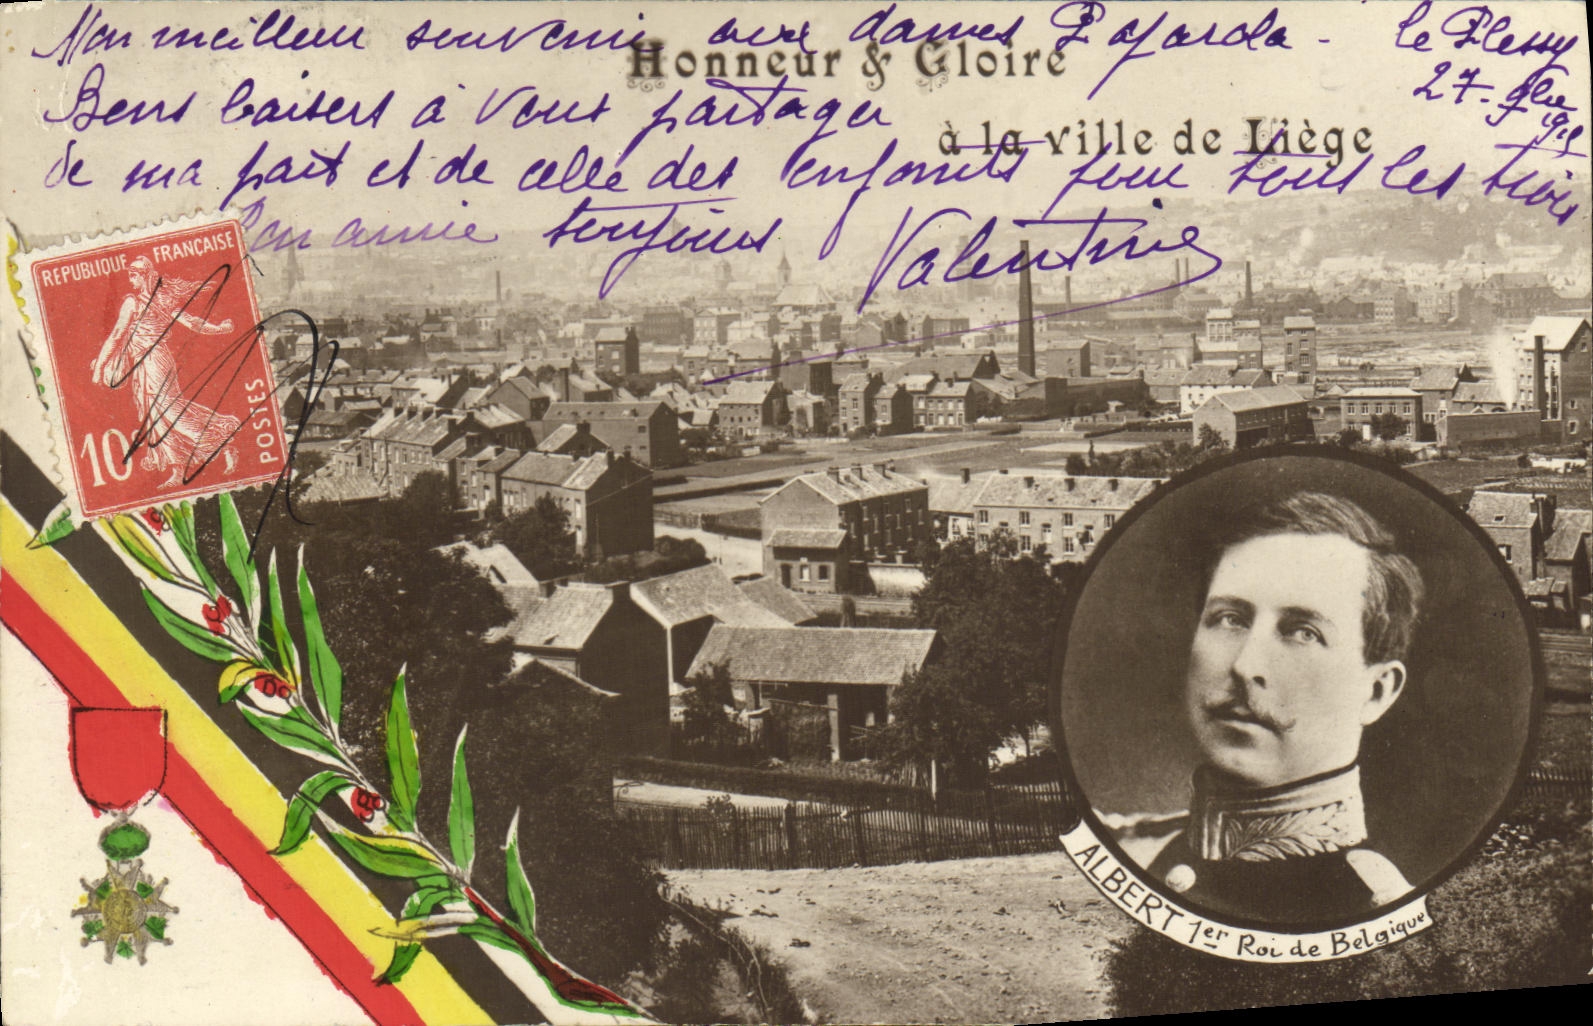 Mon meilleur souvenir aux dames - le Plessy
27 - 9bre
Honneur & Gloire
à la ville de Liège
Bons baisers à vous partager
de ma part et de celle des enfants pour tous les trois
Ton amie toujours Valentine
REPUBLIQUE FRANÇAISE
10
POSTES
ALBERT 1er Roi de Belgique